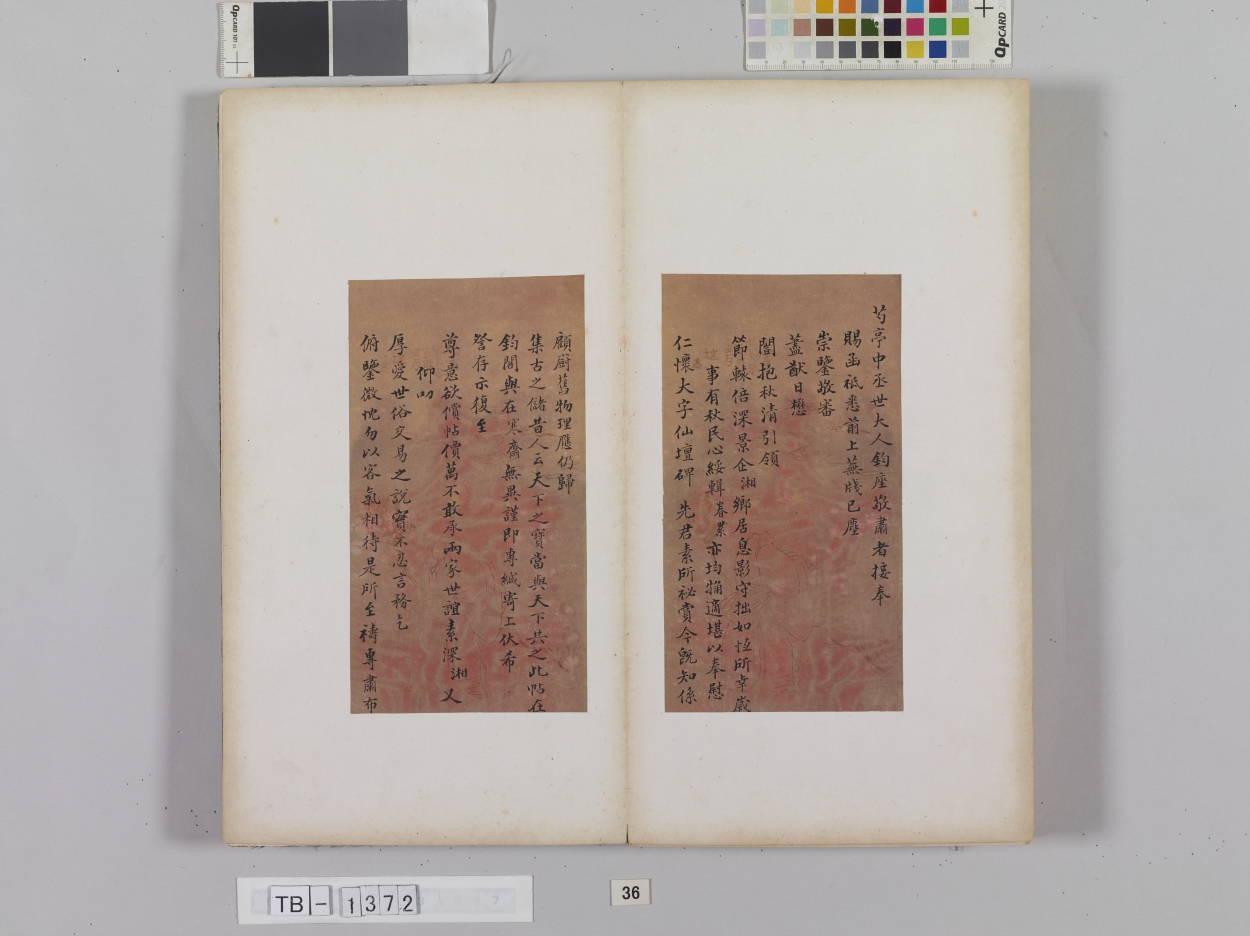 芍亭中丞世大人鈞座敬肅者接奉
賜函祗悉前上蕪牋已塵
崇鑒敬審
藎猷日懋
閫抱秋清引領
節轅倍深景企湘鄉居息影守拙如恆所幸歲
事有秋民心綏輯眷累亦均獲適堪以奉慰
仁懷大字仙壇碑 先君素所祕賞今既知係
顧廚舊物理應仍歸
集古之儲昔人云天下之寶當與天下共之此帖在
鈞閣與在寒齋無異謹即專緘寄上伏希
詧存示復至
尊意欲償帖價萬不敢承兩家世誼素深湘又
仰叨
厚愛世俗交易之說實不忍言務乞
俯鑒微忱勿以客氣相待是所至禱專肅布
OpCARD 101
OpCARD
TB-1372
36